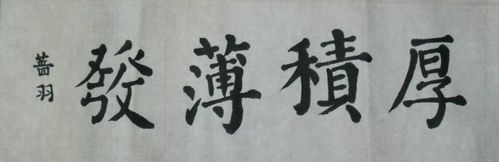 厚積薄發
蔷羽